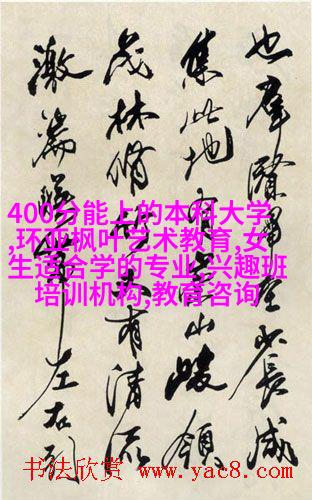 也群賢畢至少長咸
集此地有崇山峻領
茂林脩竹又有清流
激湍暎帶左右引
400分能上的本科大学
,环亚枫叶艺术教育,女
生适合学的专业,兴趣班
培训机构,教育咨询
书法欣赏 www.yac8.com